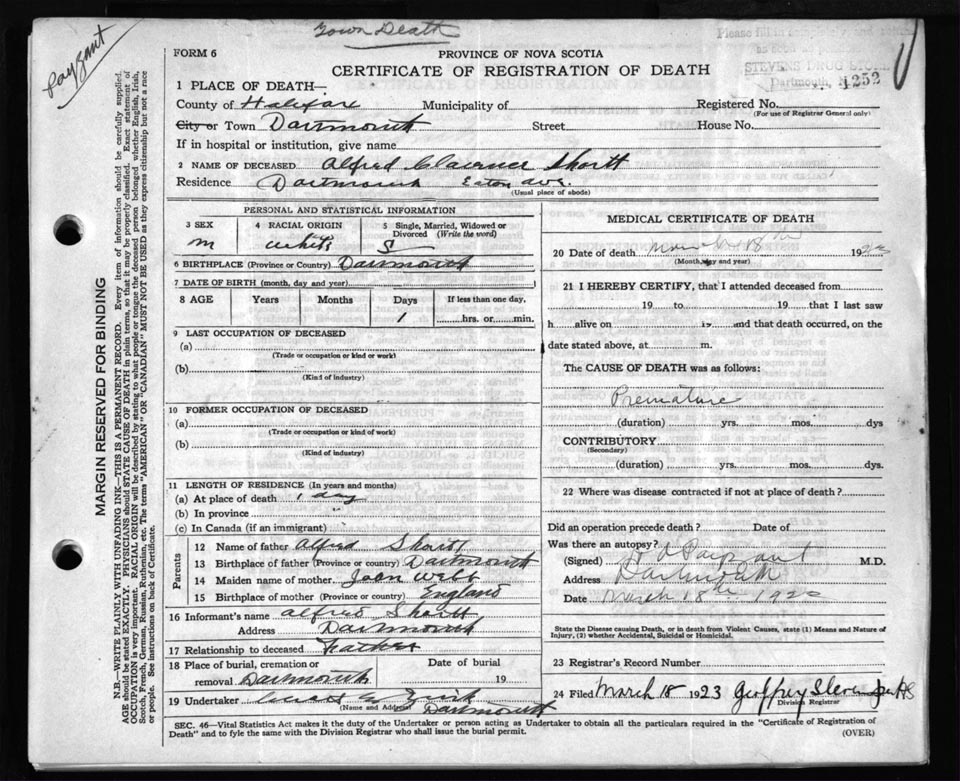 Town Death
Payzant
Please fill in completely and
STEVENS DRUG STORE
Dartmouth, N.
1252
FORM 6
PROVINCE OF NOVA SCOTIA
CERTIFICATE OF REGISTRATION OF DEATH
1 PLACE OF DEATH—
County of Halifax Municipality of Registered No.
(For use of Registrar General only)
City or Town Dartmouth Street House No.
If in hospital or institution, give name
2 NAME OF DECEASED Alfred Clarence Shortt
Residence Dartmouth Eaton Ave.
(Usual place of abode)
PERSONAL AND STATISTICAL INFORMATION
3 SEX 4 RACIAL ORIGIN 5 Single, Married, Widowed or Divorced (Write the word)
m white S
6 BIRTHPLACE (Province or Country) Dartmouth
7 DATE OF BIRTH (month, day and year)
8 AGE Years Months Days If less than one day,
1 hrs. or min.
9 LAST OCCUPATION OF DECEASED
(a)
(Trade or occupation or kind or work)
(b)
(Kind of industry)
10 FORMER OCCUPATION OF DECEASED
(a)
(Trade or occupation or kind of work)
(b)
(Kind of industry)
11 LENGTH OF RESIDENCE (In years and months)
(a) At place of death 1 day
(b) In province "
(c) In Canada (if an immigrant)
Parents
12 Name of father Alfred Shortt
13 Birthplace of father (Province or country) Dartmouth
14 Maiden name of mother Joan Webb
15 Birthplace of mother (Province or country) England
16 Informant's name Alfred Shortt
Address Dartmouth
17 Relationship to deceased Father
18 Place of burial, cremation or Date of burial
removal Dartmouth 19
19 Undertaker
(Name and Address) Dartmouth
MEDICAL CERTIFICATE OF DEATH
20 Date of death 18th 1923
(Month, day and year)
21 I HEREBY CERTIFY, that I attended deceased from
19 to 19 that I last saw
h alive on 19 and that death occurred, on the
date stated above, at m.
The CAUSE OF DEATH was as follows:
Premature
(duration) yrs. mos. dys
CONTRIBUTORY
(Secondary)
(duration) yrs. mos. dys.
22 Where was disease contracted if not at place of death?
Did an operation precede death? Date of
Was there an autopsy?
(Signed) Payzant M.D.
Address Dartmouth
Date March 18th
State the Disease causing Death, or in death from Violent Causes, state (1) Means and Nature of
Injury, (2) whether Accidental, Suicidal or Homicidal.
23 Registrar's Record Number
24 Filed March 18 1923 Geoffrey Stevens
Division Registrar
SEC. 46—Vital Statistics Act makes it the duty of the Undertaker or person acting as Undertaker to obtain all the particulars required in the "Certificate of Registration of
Death" and to fyle the same with the Division Registrar who shall issue the burial permit.
(OVER)
MARGIN RESERVED FOR BINDING
N.B.—WRITE PLAINLY, WITH UNFADING INK—THIS IS A PERMANENT RECORD. Every item of information should be carefully supplied.
AGE should be stated EXACTLY. PHYSICIANS should STATE CAUSE OF DEATH in plain terms, so that it may be properly classified. Exact statement of
OCCUPATION is very important. RACIAL ORIGIN will be described by stating to what people or tongue the deceased person belonged whether English, Irish,
Scotch, French, German, Russian, Ruthenian, etc. The terms "AMERICAN" OR "CANADIAN" MUST NOT BE USED as they express citizenship but not a race
or people. See instructions on back of Certificate.